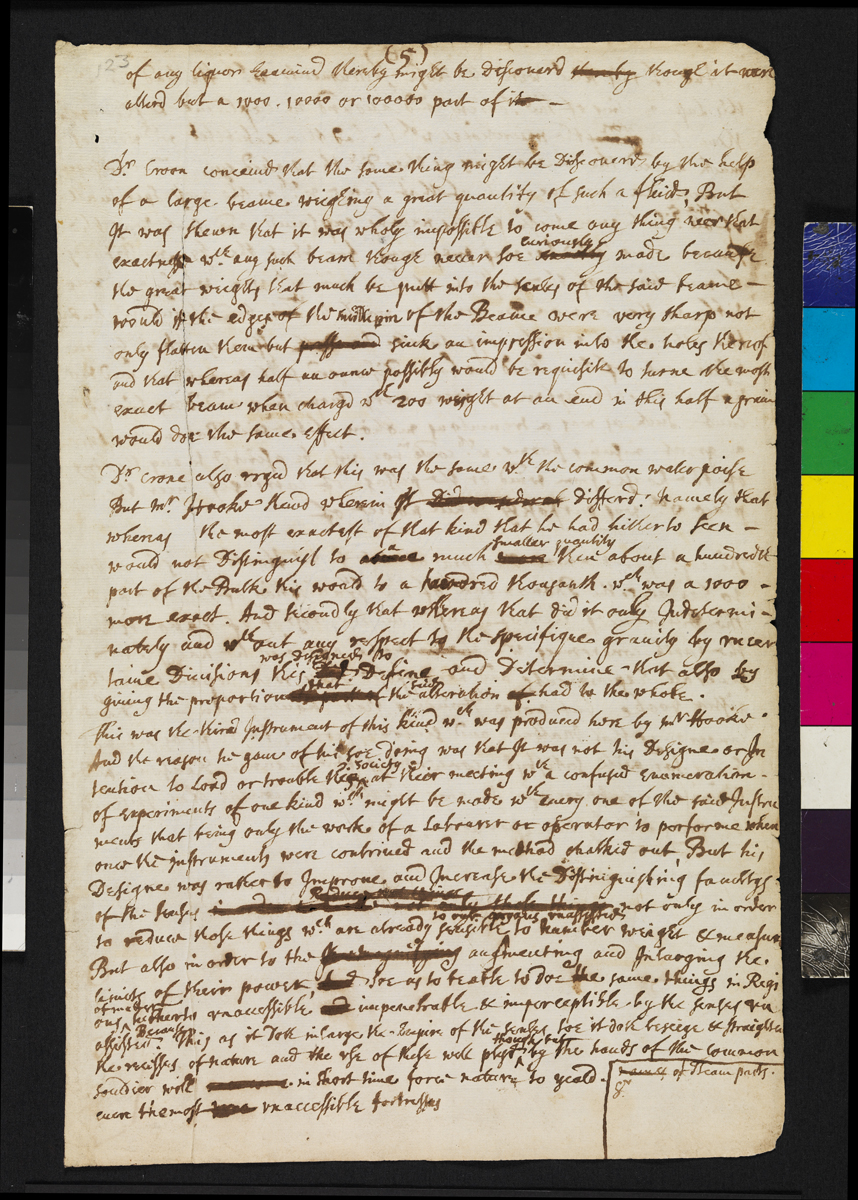 (5)
23
of any liquor Examind thereby might be Discouerd thereby though it were
alterd but a 1000. 10000 or 100000 part of it –
Dr. Croon conceiud that the same thing might be Discouerd by the help
of a large beame weighing a great quantity of such a fluid, But
It was shewn that it was wholy impossible to come any thing neer that
curiously
exactness wth any such beam though neuer soe made because
the great weights that much be putt into the scales of the said beame –
would if the edges of the middle pin of the Beame were very sharp not
only flatten them but passe and sink an impression into the holes therof
and that whereas half an ounce possibly would be requisit to turne the most
exact beam when chargd wth 200 weight at an end in this half a grain
would doe the same effect.
Dr. Crone also vrgd that this was the same wth the common water poise
But mr. Hooke shewd wherein it differd: namely that
whereas the most exactest of that kind that he had hitherto seen –
smaller quantity
would not Distinguish to much then about a hundredth
part of the Bulk this would to a hundred thousanth. wch was a 1000 –
more exact. And secondly that whereas that did it only Indetermi-
nately and wthout any respect to the specifique grauity by vncer
was designed to
taine Diuisions this Define and Determine that also by
that said
giuing the proportion the alteration of had to the whole.
This was the third Instrument of this kind wch was produced here by mr Hooke.
And the reason he gaue of his soe doing was that It was not his Designe or In
Society
tention to Load or trouble the at their meeting wth a confused enumeration –
of experiments of one kind wch might be made wth euery one of the said Instru
ments that being only the work of a Labourer or operator to performe when
once the instruments were contriued and the method chalked out, But his
Designe was rather to Improue and Increase the Distinguishing facultys
of the senses not only in order
to our organs vnassisted
to reduce those things wch are already sensible to number weight & measure
But also in order to the augmenting and Inlarging the
limits of their power, soe as to enable to doe the same things in Regi
of matter
ons hitherto vnaccessible impenetrable & imperceptible by the senses vn
assisted. Because This as it doth inlarge the Empire of the senses soe it doth beseige & straighten
though but
the recesses of nature and the vse of these well plyd by the hands of the common
souldier will in short time force nature to yeald
euen the most vnaccessible fortresses
names of Steam parts.